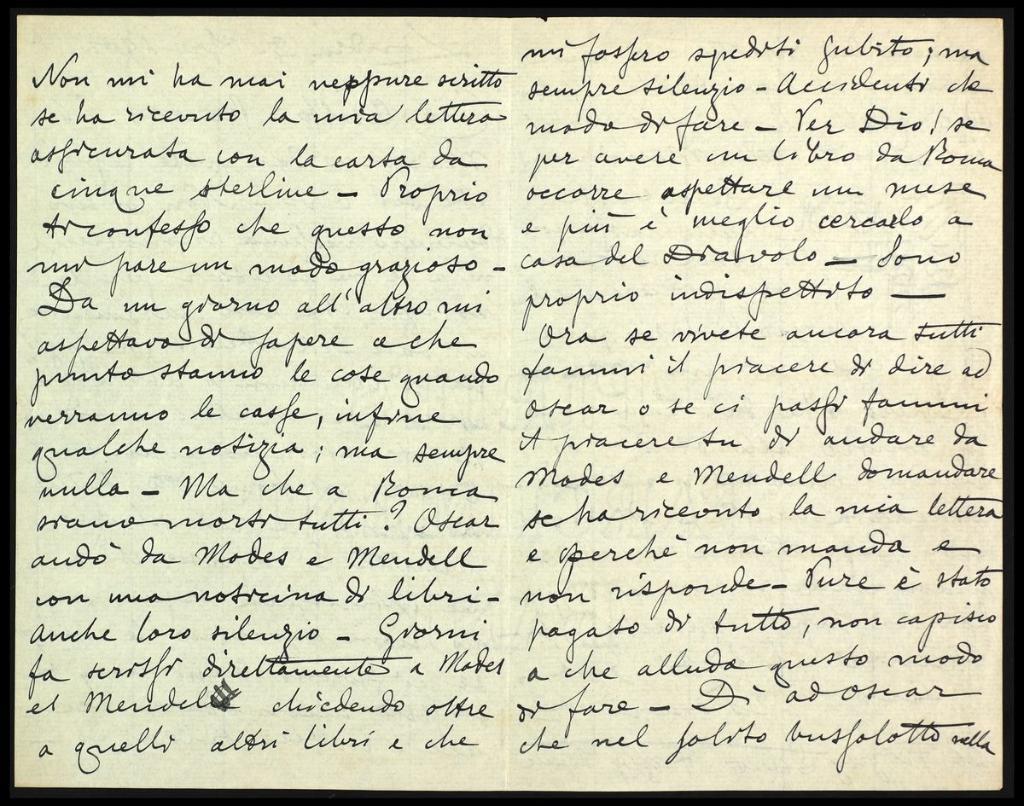 Non mi ha mai neppure scritto
se ha ricevuto la mia lettera
assicurata con la carta da
cinque sterline – Proprio
ti confesso che questo non
mi pare un modo grazioso –
Da un giorno all'altro mi
aspettavo di sapere a che
punto stanno le cose quando
verranno le casse, infine
qualche notizia; ma sempre
nulla – Ma che a Roma
siano morti tutti? Oscar
andò da Modes e Mendell
con una noticina di libri –
anche loro silenzio – Giorni
fa scrissi direttamente a Modes
et Mendell chiedendo oltre
a quelli altri libri e che
mi fossero spediti subito; ma
sempre silenzio – Accidenti che
modo di fare – Per Dio! se
per avere un libro da Roma
occorre aspettare un mese
e più è meglio cercarlo a
casa del Diavolo – Sono
proprio indispettito –
Ora se vivete ancora tutti
fammi il piacere di dire ad
Oscar o se ci passi fammi
il piacere tu di andare da
Modes e Mendell domandare
se ha ricevuto la mia lettera
e perché non manda e
non risponde – Pure è stato
pagato di tutto, non capisco
a che alluda questo modo
di fare – Di ad Oscar
che nel solito bussolotto nella